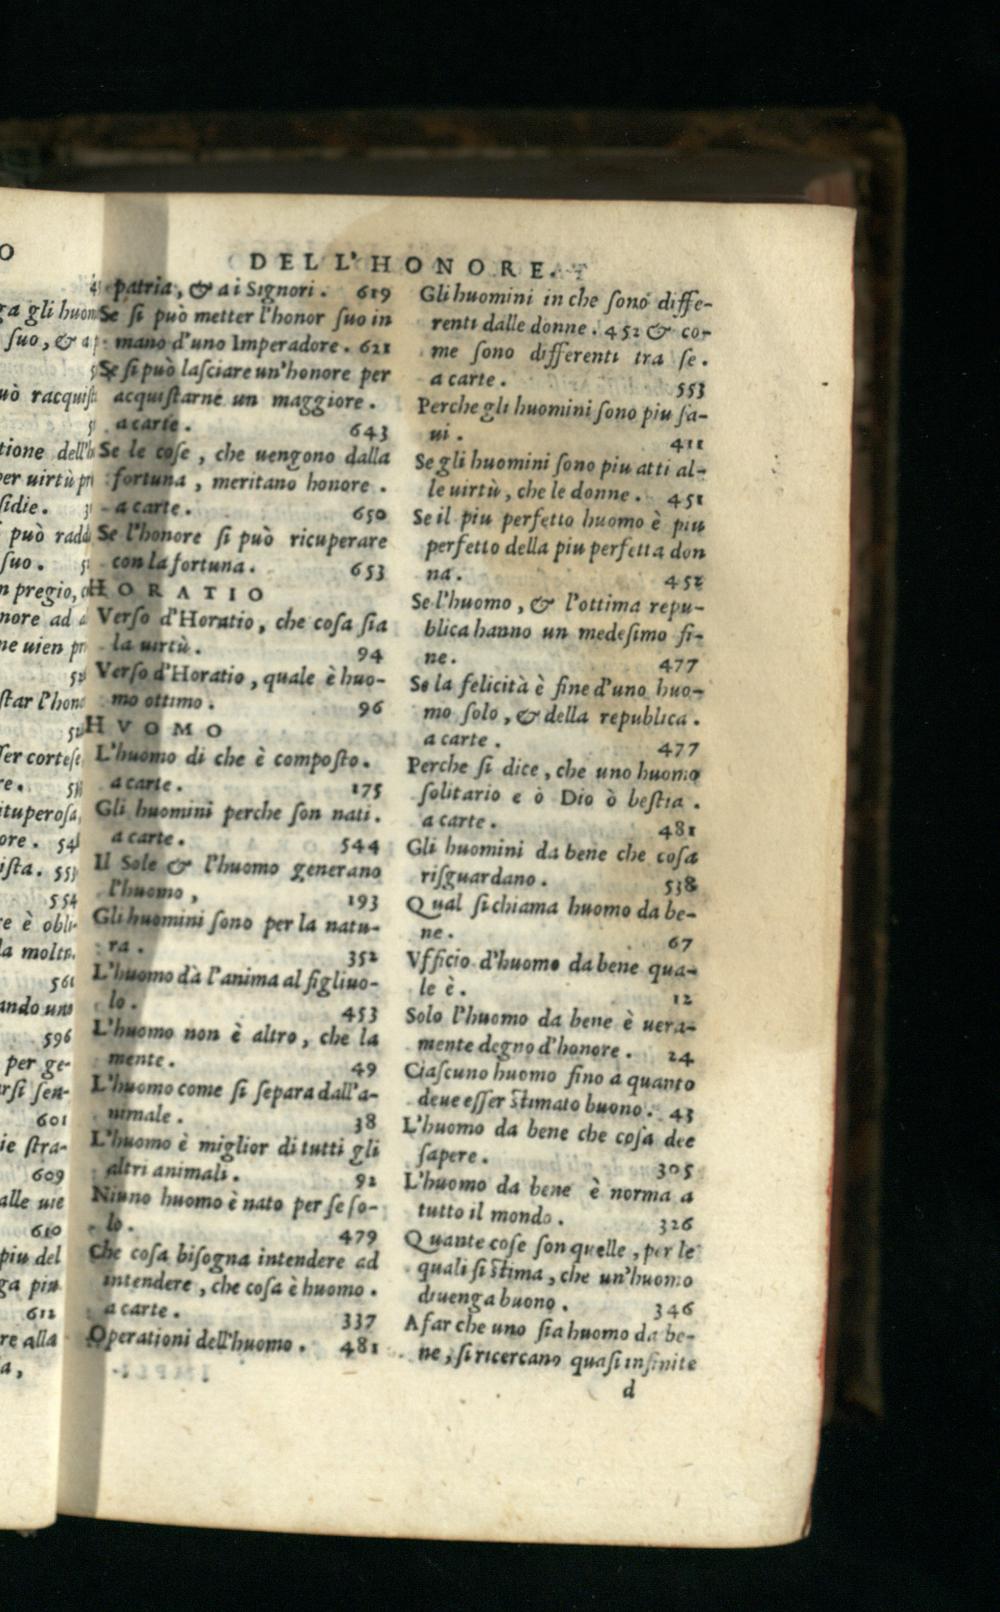 DELL'HONORE.
patria, & ai Signori. 619
Se si può metter l'honor suo in
mano d'uno Imperadore. 621
Se si può lasciare un'honore per
acquistarne un maggiore.
a carte. 643
Se le cose, che uengono dalla
fortuna, meritano honore.
a carte. 650
Se l'honore si può ricuperare
con la fortuna. 653
HORATIO
Verso d'Horatio, che cosa sia
la uirtù. 94
Verso d'Horatio, quale è huo-
mo ottimo. 96
HVOMO
L'huomo di che è composto.
a carte. 175
Gli huomini perche son nati.
a carte. 544
Il Sole & l'huomo generano
l'huomo, 193
Gli huomini sono per la natu-
ra. 352
L'huomo dà l'anima al figliuo-
lo. 453
L'huomo non è altro, che la
mente. 49
L'huomo come si separa dall'a-
nimale. 38
L'huomo è miglior di tutti gli
altri animali. 92
Niuno huomo è nato per se so-
lo. 479
Che cosa bisogna intendere ad
intendere, che cosa è huomo.
a carte. 337
Operationi dell'huomo. 481
Gli huomini in che sono diffe-
renti dalle donne. 452 & co-
me sono differenti tra se.
a carte. 553
Perche gli huomini sono piu sa-
ui. 411
Se gli huomini sono piu atti al-
le uirtù, che le donne. 451
Se il piu perfetto huomo è piu
perfetto della piu perfetta don
na. 452
Se l'huomo, & l'ottima repu-
blica hanno un medesimo fi-
ne. 477
Se la felicità è fine d'uno huo-
mo solo, & della republica.
a carte. 477
Perche si dice, che uno huomo
solitario e ò Dio ò bestia.
a carte. 481
Gli huomini da bene che cosa
risguardano. 538
Qual si chiama huomo da be-
ne. 67
Vfficio d'huomo da bene qua-
le è. 12
Solo l'huomo da bene è uera-
mente degno d'honore. 24
Ciascuno huomo fino a quanto
deue esser stimato buono. 43
L'huomo da bene che cosa dee
sapere. 305
L'huomo da bene è norma a
tutto il mondo. 326
Quante cose son quelle, per le
quali si stima, che un'huomo
diuenga buono. 346
A far che uno sia huomo da be-
ne, si ricercano quasi infinite
d